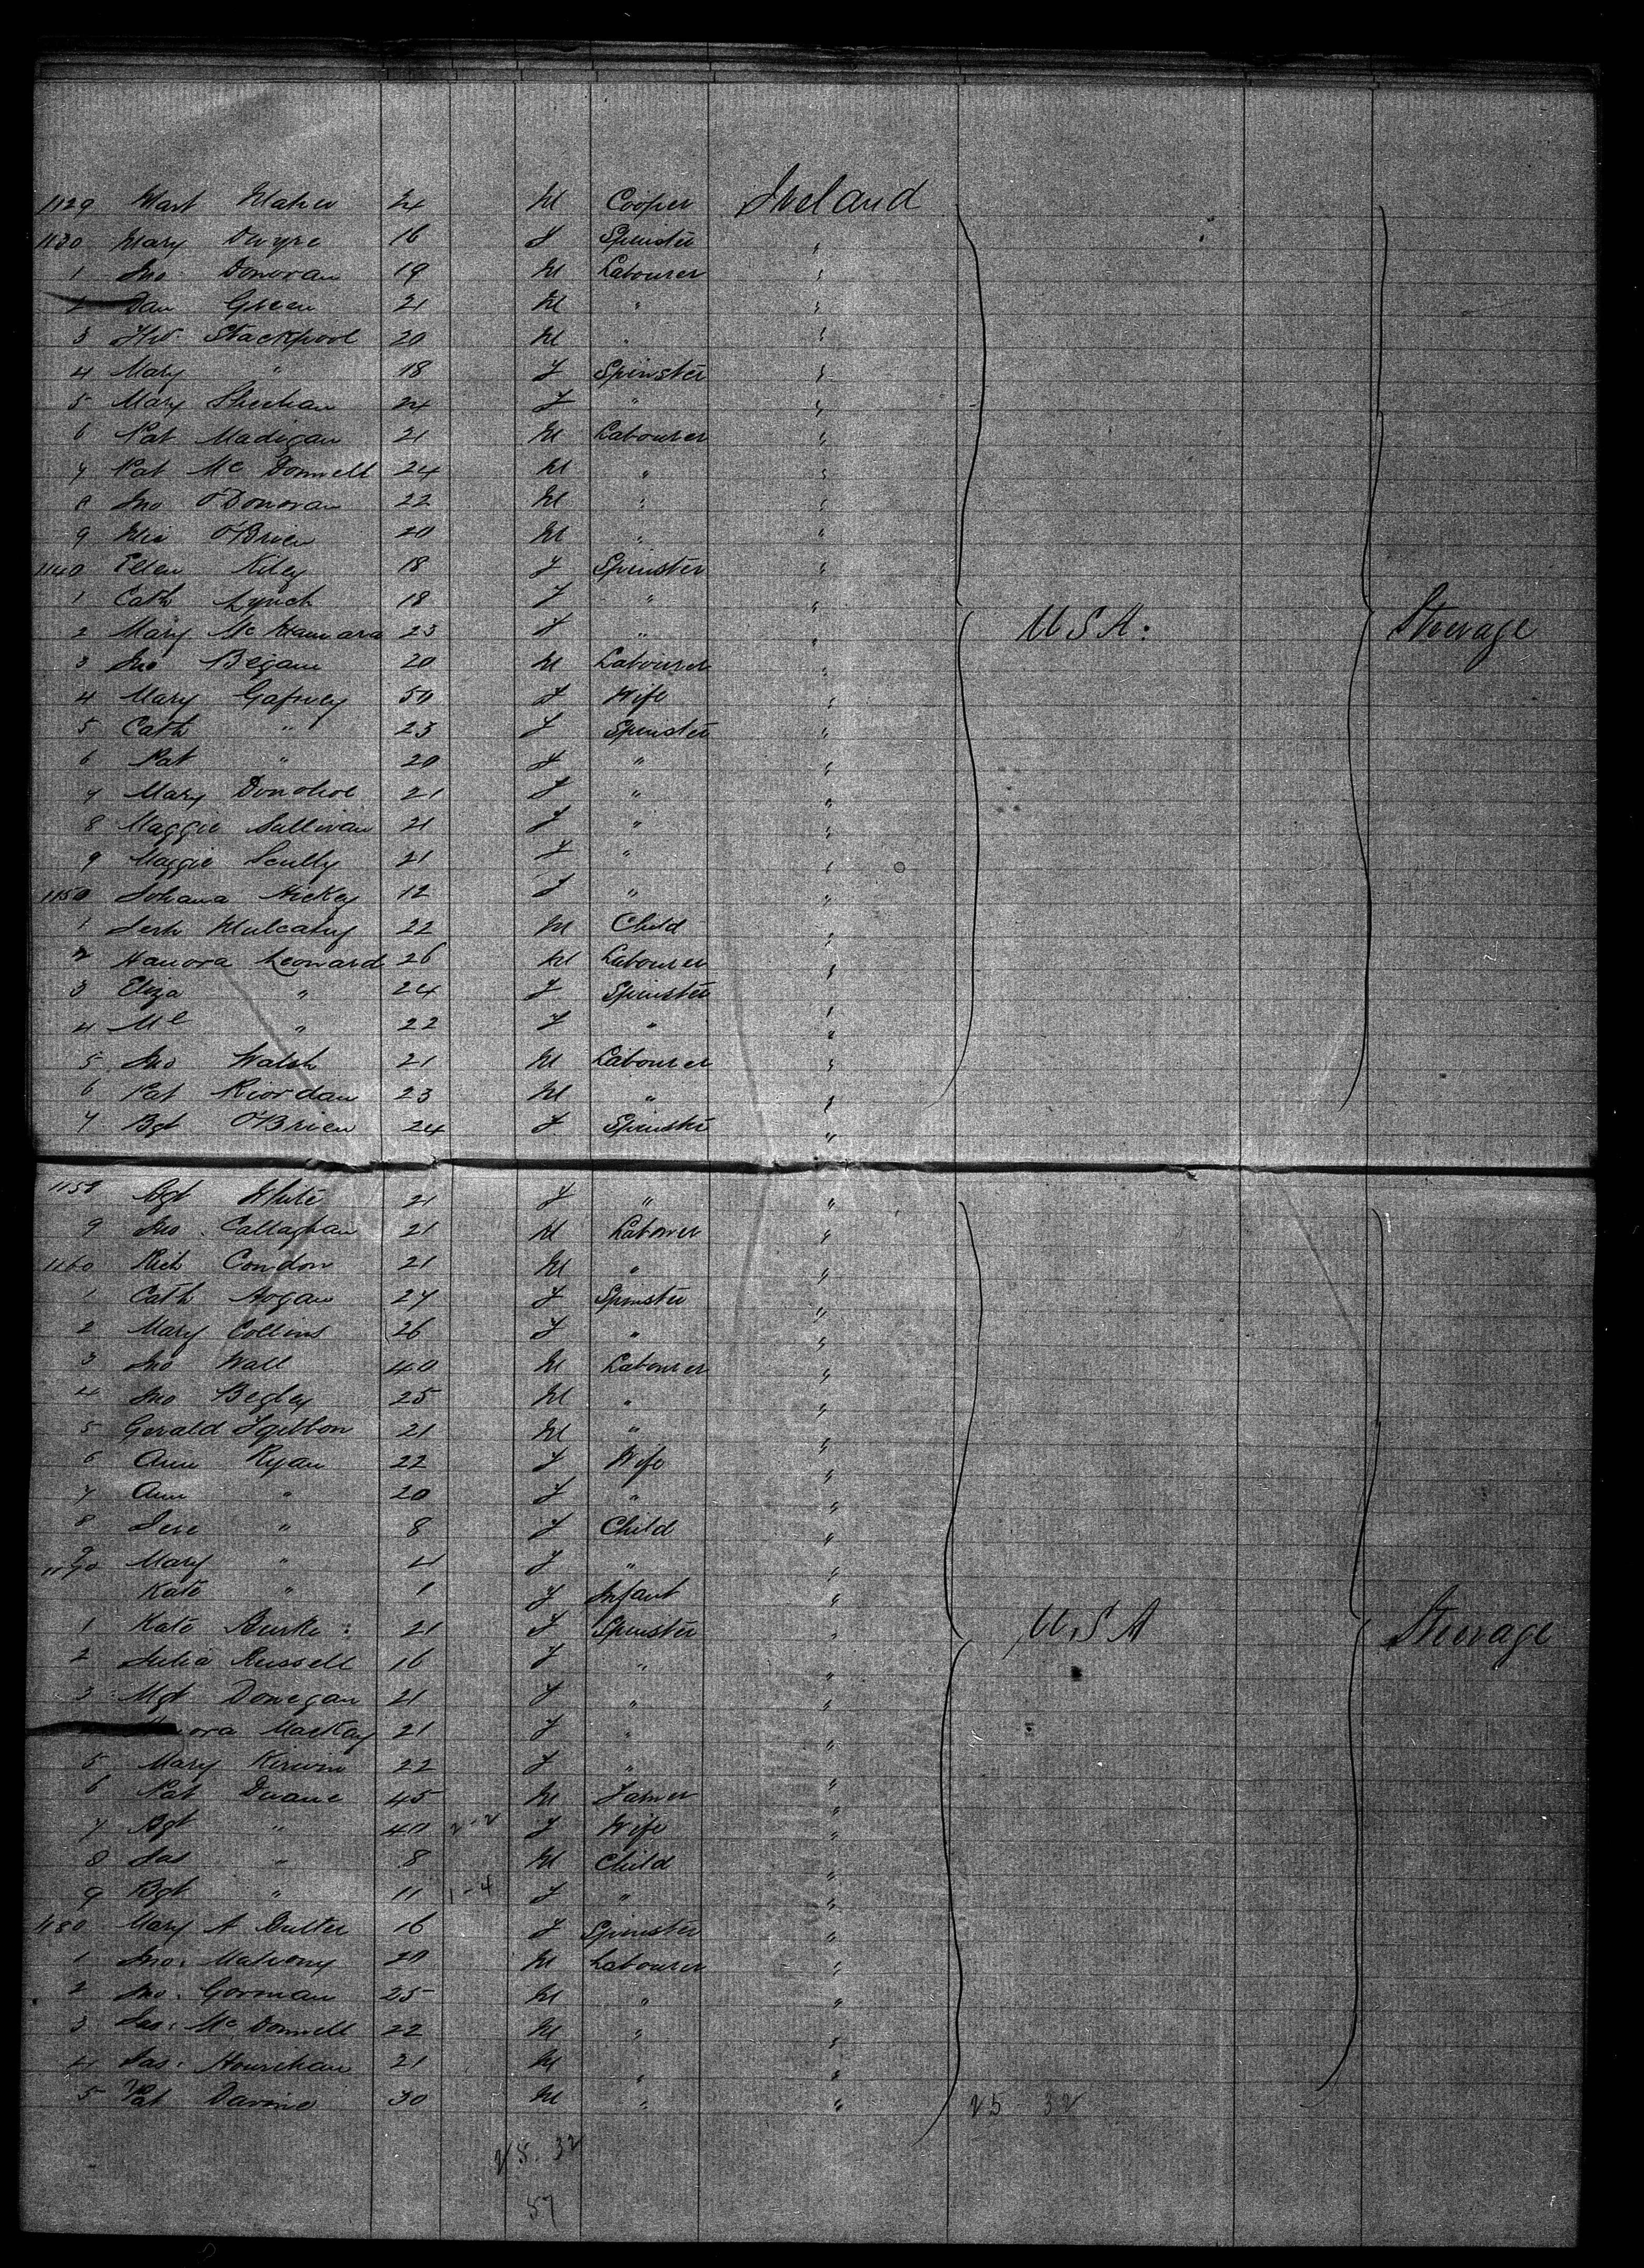 1129 Mart Maher 24 M Cooper Ireland
1130 Mary Dwyre 16 F Spinster "
1 Jno Donovan 19 M Labourer "
2 Dan Green 21 M " "
3 Stackpool 20 M " "
4 Mary " 18 F Spinster "
5 Mary Sheehan 24 F " "
6 Pat Madigan 21 M Labourer "
7 Pat Mc Donnell 24 M " "
8 Jno O'Donovan 22 M " "
9 O'Brien 20 M " "
1140 Ellen Kiley 18 F Spinster "
1 Cath Lynch 18 F " "
2 Mary McNamara 23 F " " U.S.A. Steerage
3 Jno Began 20 M Labourer "
4 Mary Gafney 50 F Wife "
5 Cath " 23 F Spinster "
6 Pat " 20 F " "
7 Mary Donohoe 21 F " "
8 Maggie Sullivan 21 F " "
9 Maggie Scully 21 F " "
1150 Johana Hickey 12 F " "
1 Mulcahy 22 M Child "
2 Hanora Leonard 26 M Labourer "
3 Eliza " 24 F Spinster "
4 Ml " 22 F " "
5 Jno Walsh 21 M Labourer "
6 Pat Riordan 23 M " "
7 Bgt O'Brien 24 F Spinster "
1158 Bgt White 21 F " "
9 Jno. Callaghan 21 M Labourer "
1160 Rich Condon 21 M " "
1 Cath Hogan 27 F Spinster "
2 Mary Collins 26 F " "
3 Jno Wall 40 M Labourer "
4 Jno Begley 25 M " "
5 Gerald Fgibbon 21 M " "
6 Ann Ryan 22 F Wife "
7 Ann " 20 F " "
8 Jere " 8 F Child "
9 Mary " 4 F " "
1170 Kate " 1 F Infant "
1 Kate Burke 21 F Spinster " U.S.A Steerage
2 Julia Russell 16 F " "
3 Mgt Donegan 21 F " "
ora MacKay 21 F " "
5 Mary Kirwin 22 F " "
6 Pat Duane 45 M Farmer "
7 Bgt " 40 2-2 F Wife "
8 Jas " 8 M Child "
9 Bgt " 11 1-4 F " "
1180 Mary A Butler 16 F Spinster "
1 Jno. Mahony 20 M Labourer "
2 Jno. Gorman 25 M " "
3 Jas. Mc Donnell 22 M " "
4 Jas. Hourihan 21 M " "
5 Pat Davine 30 M " " 25 32
25. 32
57